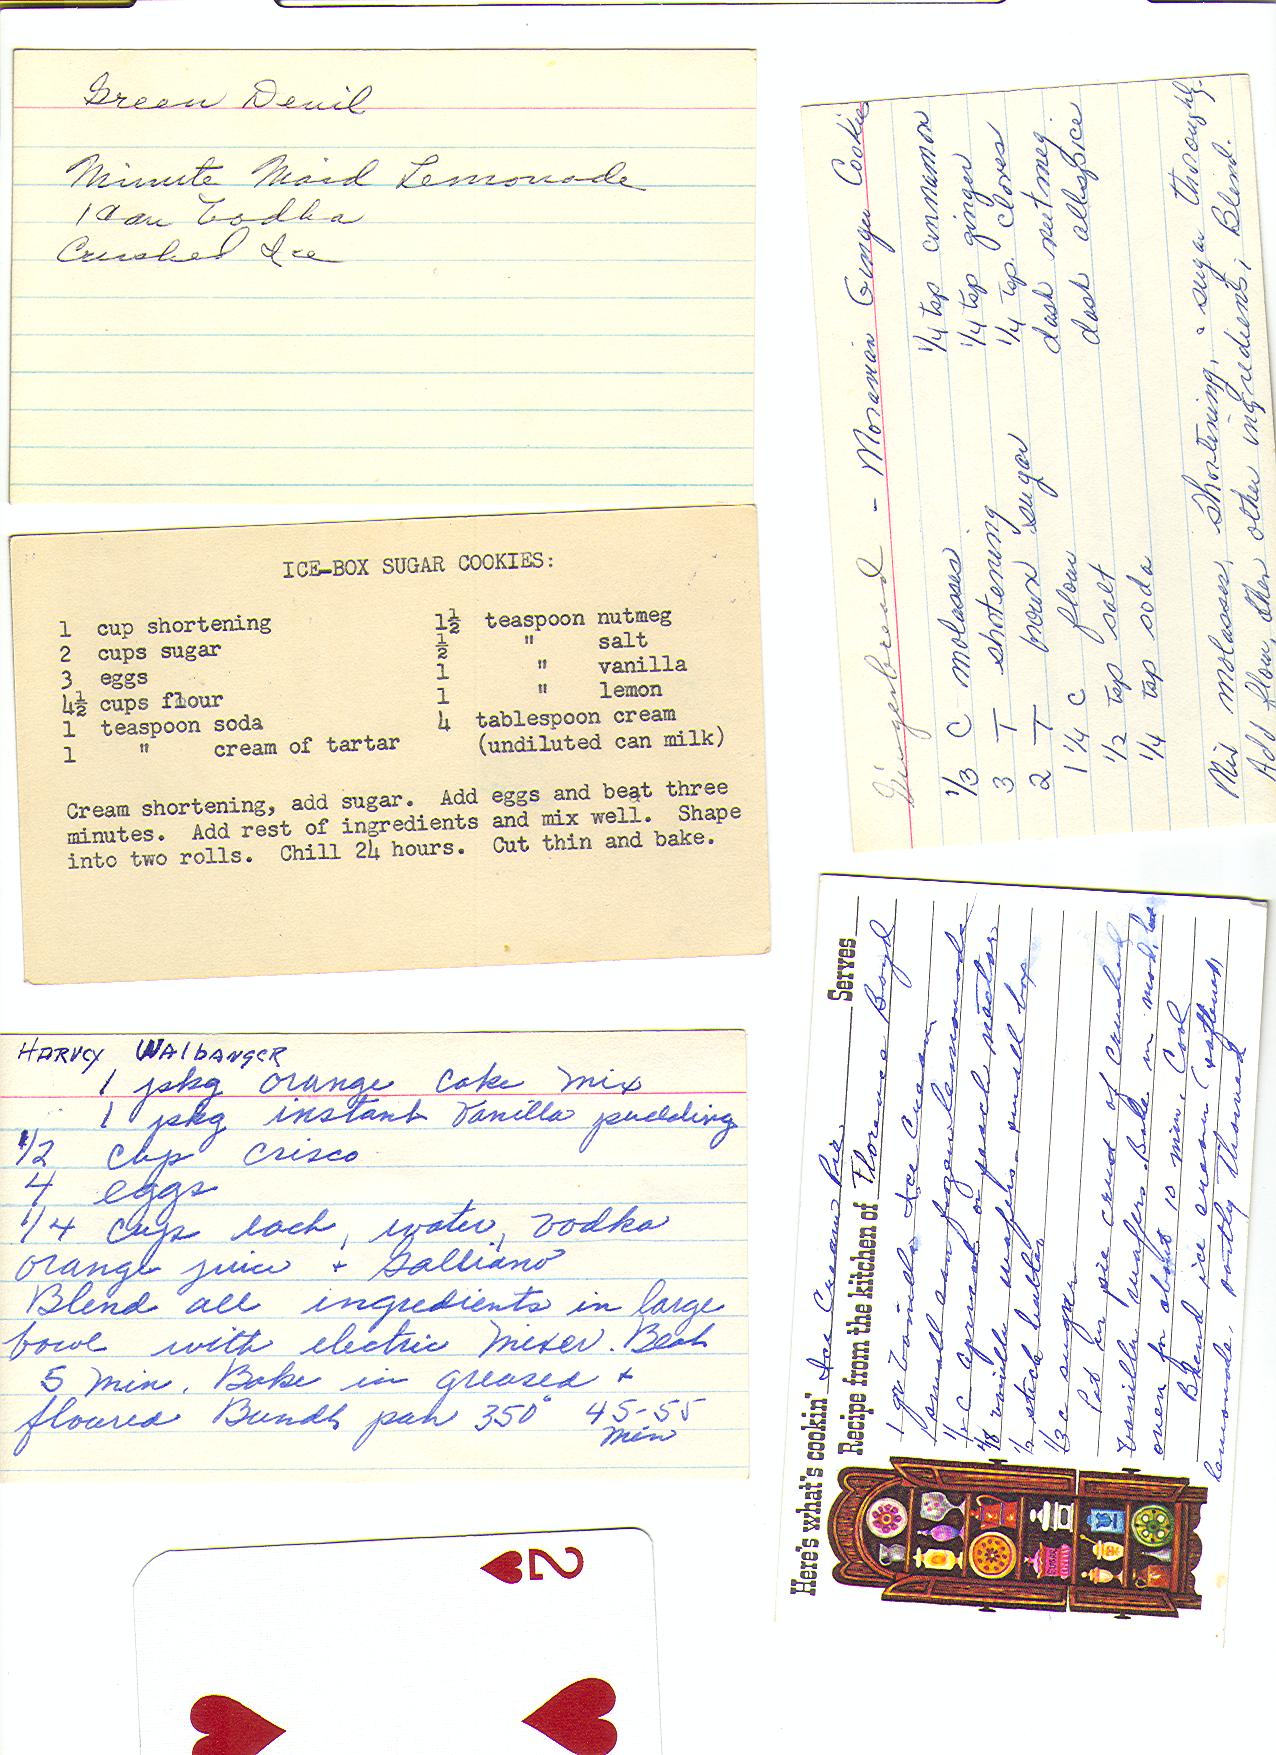 Green Devil
Minute Maid Lemonade
1 Can Vodka
Crushed Ice
ICE-BOX SUGAR COOKIES:
1 cup shortening
2 cups sugar
3 eggs
4½ cups flour
1 teaspoon soda
1 " cream of tartar
1½ teaspoon nutmeg
½ " salt
1 " vanilla
1 " lemon
4 tablespoon cream
(undiluted can milk)
Cream shortening, add sugar. Add eggs and beat three
minutes. Add rest of ingredients and mix well. Shape
into two rolls. Chill 24 hours. Cut thin and bake.
HARVEY WAlbANGER
1 pkg orange cake mix
1 pkg instant vanilla pudding
1/2 cup crisco
4 eggs
1/4 cups each, water, vodka
orange juice + Galliano
Blend all ingredients in large
bowl with electric mixer. Beat
5 min. Bake in greased +
floured Bundt pan 350° 45-55
min
2
Gingerbread - Moravian Ginger Cookie
1/3 C molasses
3 T shortening
2 T brown sugar
1 1/4 C flour
1/2 tsp salt
1/4 tsp soda
1/4 tsp cinnamon
1/4 tsp ginger
1/4 tsp. cloves
dash nutmeg.
dash allspice
Mix molasses, shortening, & sugar thoroughly.
Add flour, then other ingredients; Blend.
Here's what's cookin' Ice Cream Pie Serves
Recipe from the kitchen of Florence Boyd
1 qt Vanilla Ice Cream
1 small can frozen lemonade
1/2 C apricot or peach nectar
48 vanilla wafers - small box
1/2 stick butter
1/3 c sugar
Pat in pie crust of crushed
vanilla wafers. Bake in mod.
oven for about 10 min. Cool
Blend ice cream (softened)
lemonade, partly thawed